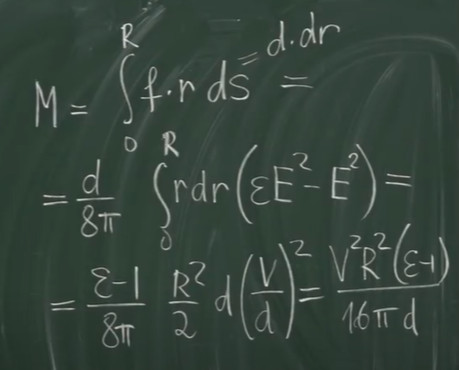 M = ∫₀ᴿ f · r ds = d · dr =
= d/8π ∫₀ᴿ r dr (εE² − E²) =
= ε−1/8π R²/2 d(V/d)² = V²R²(ε−1)/16πd